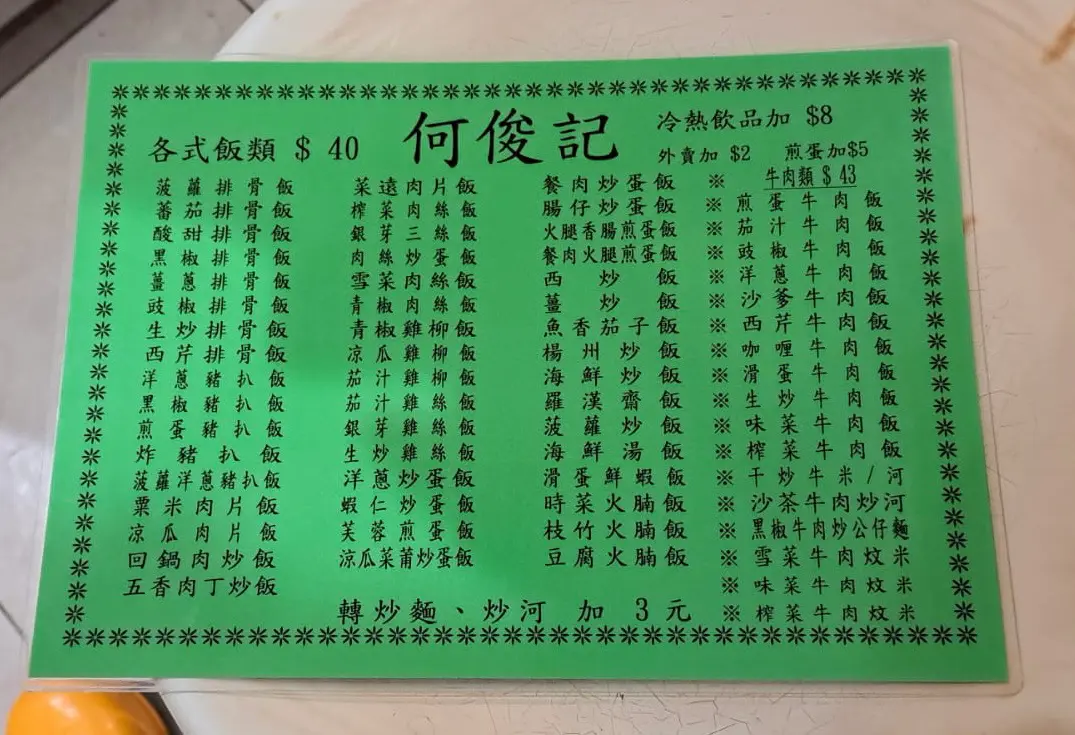 何俊記
各式飯類 $ 40
冷熱飲品加 $8
外賣加 $2 煎蛋加$5
菠蘿排骨飯
蕃茄排骨飯
酸甜排骨飯
黑椒排骨飯
薑蔥排骨飯
豉椒排骨飯
生炒排骨飯
西芹排骨飯
洋蔥豬扒飯
黑椒豬扒飯
煎蛋豬扒飯
炸豬扒飯
菠蘿洋蔥豬扒飯
粟米肉片飯
凉瓜肉片飯
回鍋肉炒飯
五香肉丁炒飯
菜遠肉片飯
榨菜肉絲飯
銀芽三絲飯
肉絲炒蛋飯
雪菜肉絲飯
青椒肉絲飯
青椒雞柳飯
凉瓜雞柳飯
茄汁雞柳飯
茄汁雞絲飯
銀芽雞絲飯
生炒雞絲飯
洋蔥炒蛋飯
蝦仁炒蛋飯
芙蓉煎蛋飯
涼瓜菜莆炒蛋飯
餐肉炒蛋飯
腸仔炒蛋飯
火腿香腸煎蛋飯
餐肉火腿煎蛋飯
西炒飯
薑炒飯
魚香茄子飯
楊州炒飯
海鮮炒飯
羅漢齋飯
菠蘿炒飯
海鮮湯飯
滑蛋鮮蝦飯
時菜火腩飯
枝竹火腩飯
豆腐火腩飯
※ 牛肉類 $ 43
※ 煎蛋牛肉飯
※ 茄汁牛肉飯
※ 豉椒牛肉飯
※ 洋蔥牛肉飯
※ 沙爹牛肉飯
※ 西芹牛肉飯
※ 咖喱牛肉飯
※ 滑蛋牛肉飯
※ 生炒牛肉飯
※ 味菜牛肉飯
※ 榨菜牛肉飯
※ 干炒牛米/河
※ 沙茶牛肉炒河
※ 黑椒牛肉炒公仔麵
※ 雪菜牛肉炆米
※ 味菜牛肉炆米
※ 榨菜牛肉炆米
轉炒麵、炒河 加 3元